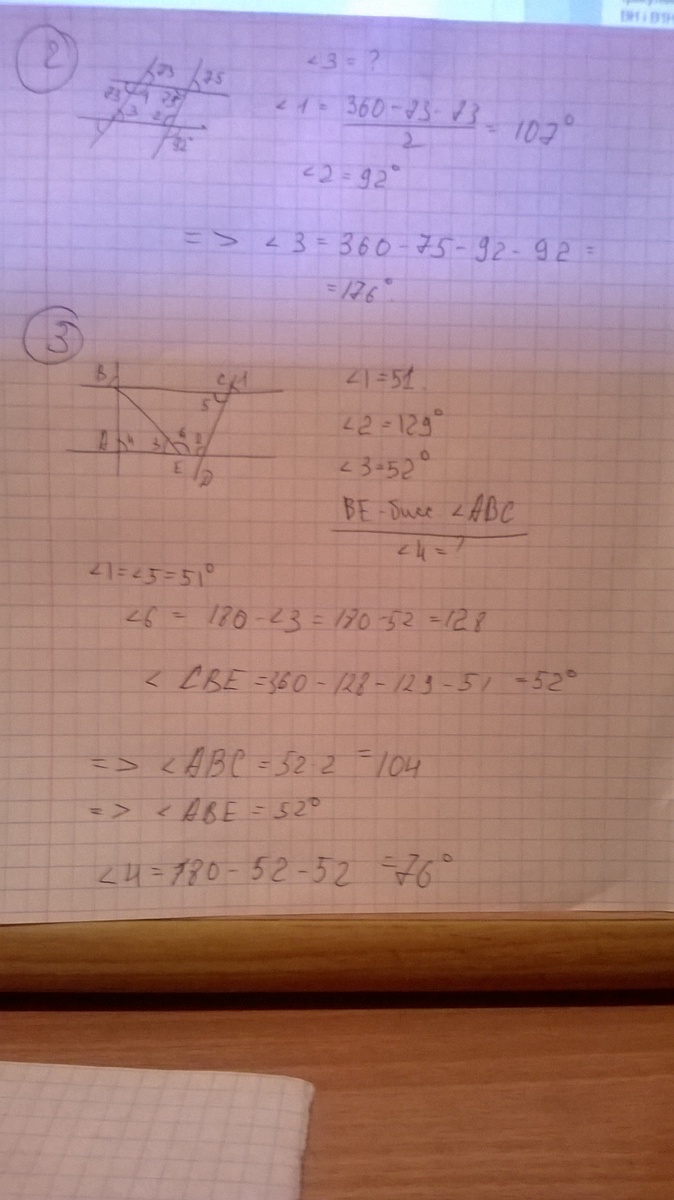 2
73
75
73
1
75
3
2
92°
∠3 = ?
∠1 = (360-73-73)/2 = 107°
∠2 = 92°
=> ∠3 = 360-75-92-92 =
=176°.
3
B
C
1
5
A
4
3
6
2
E
D
∠1=51.
∠2=129°
∠3=52°
BE-бисс ∠ABC
∠4=?
∠1=∠5=51°
∠6 = 180-∠3 = 180-52 =128
∠ CBE =360-128-129-51 =52°
=> ∠ABC =52·2 =104
=> ∠ABE = 52°
∠4=180-52-52 =76°